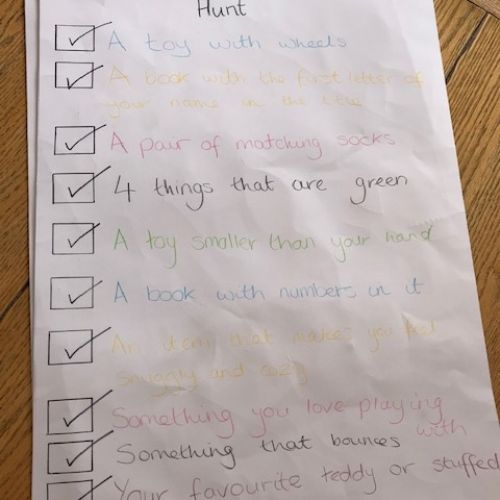 Hunt
A toy with wheels
A book with the first letter of
your name in the title
A pair of matching socks
4 things that are green
A toy smaller than your hand
A book with numbers in it
An item that makes you feel
snuggly and cozy
Something you love playing
with
Something that bounces
Your favourite teddy or stuffed